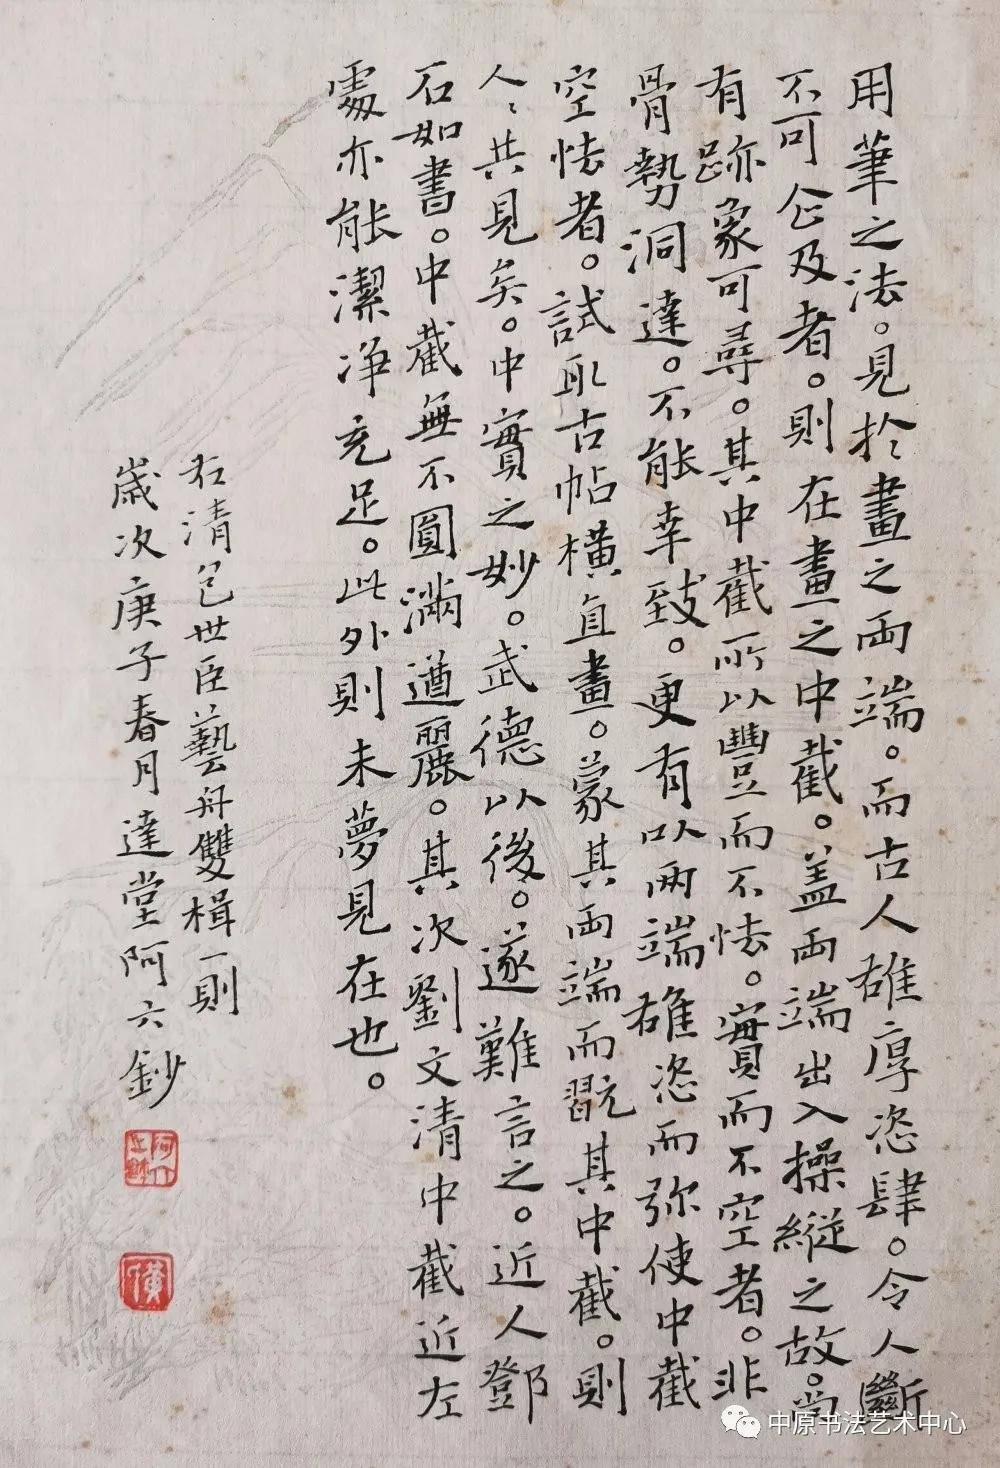 用筆之法。見於畫之兩端。而古人雄厚恣肆。令人斷
不可企及者。則在畫之中截。蓋兩端出入操縱之故。尚
有跡象可尋。其中截所以豐而不怯。實而不空者。非
骨勢洞達。不能幸致。更有以兩端雄恣而弥使中截
空怯者。試取古帖橫直畫。蒙其兩端而翫其中截。則
人〻共見矣。中實之妙。武德以後。遂難言之。近人鄧
石如書。中截無不圓滿遒麗。其次劉文清中截近左
處亦能潔净充足。此外則未夢見在也。
右清包世臣藝舟雙楫一則
歲次庚子春月達堂阿六鈔
中原书法艺术中心